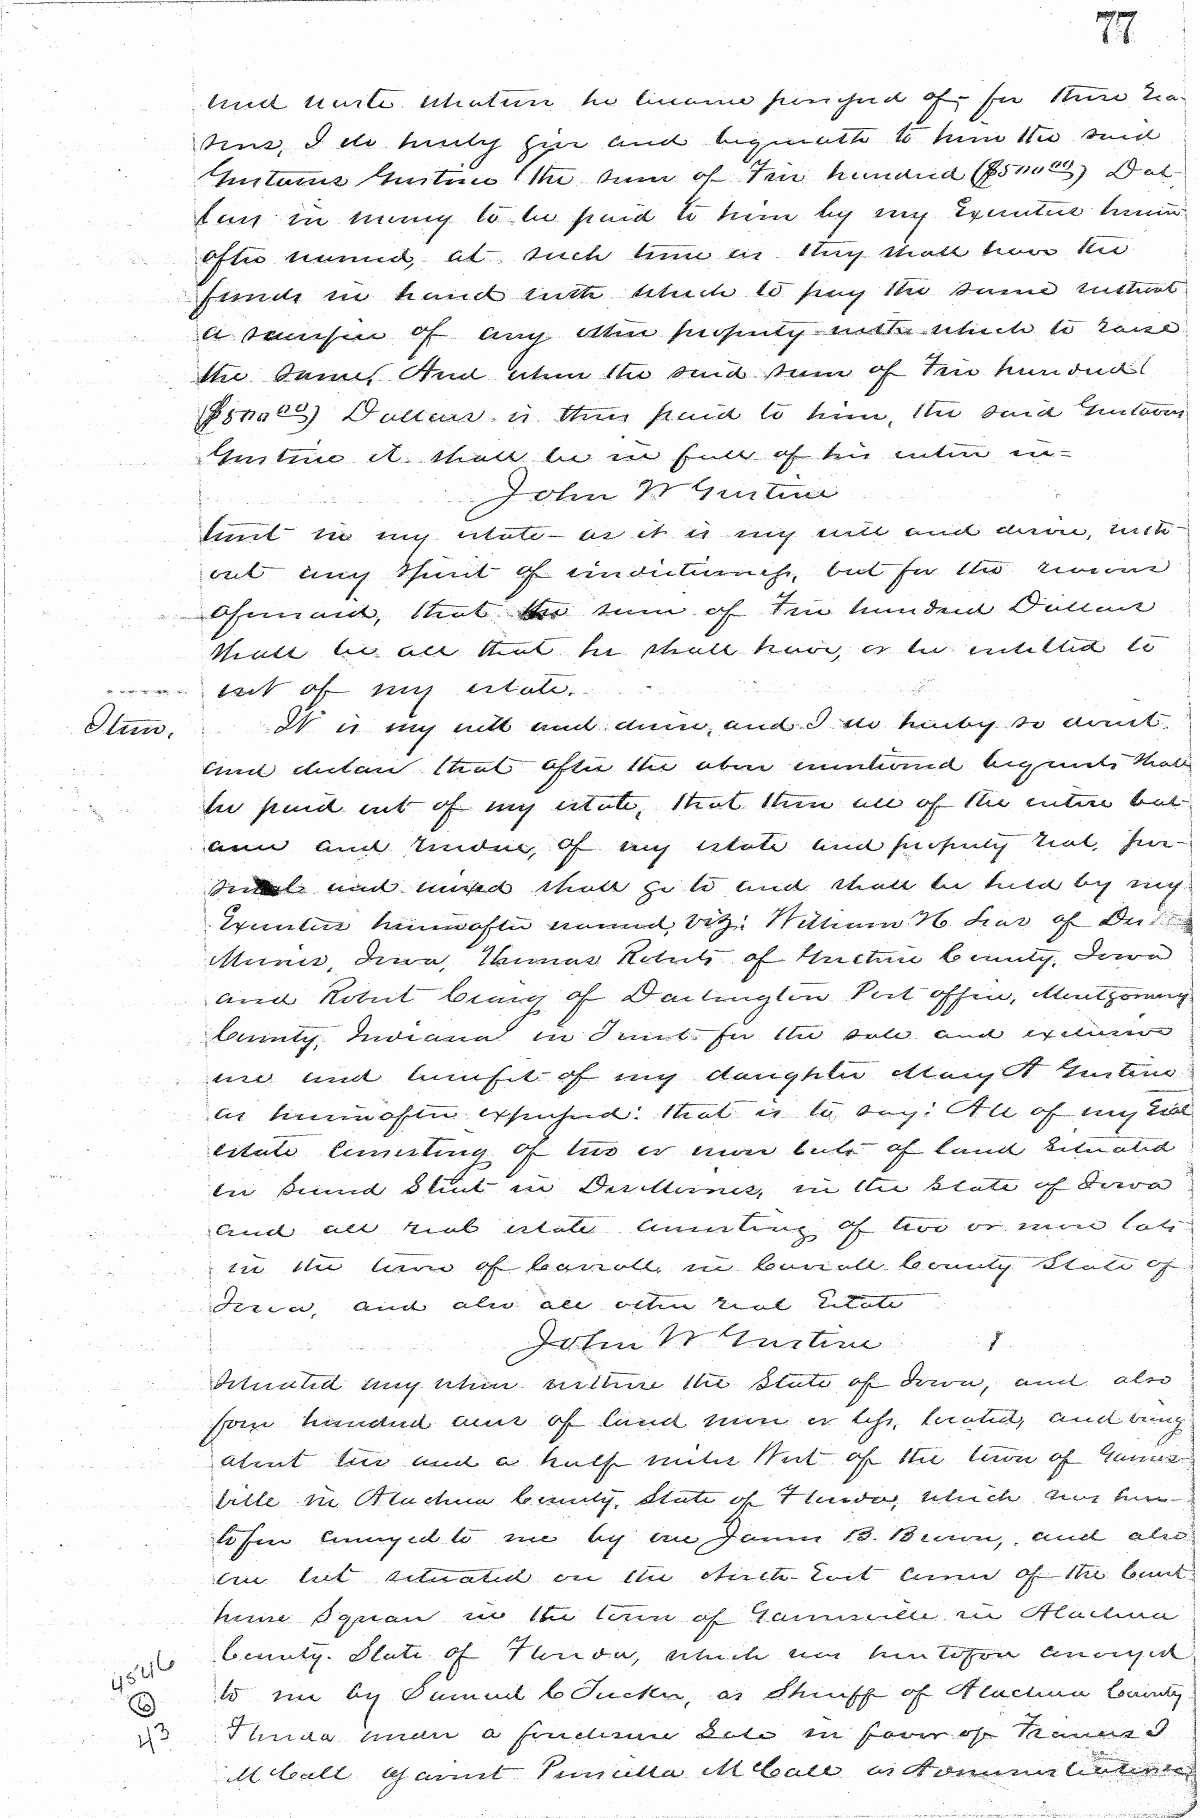 77
and waste whatever he became possessed of, for these rea-
sons, I do hereby give and bequeath to him the said
Gustavus Gustine the sum of Five hundred ($500.00) Dol-
lars in money to be paid to him by my Executors herein
after named, at such time as they shall have the
funds in hand with which to pay the same without
a sacrifice of any other property with which to raise
the same, And when the said sum of Five hundred
($500.00) Dollars is thus paid to him, the said Gustavus
Gustine it shall be in full of his entire in=
John W Gustine
terest in my estate - as it is my will and desire, with-
out any spirit of vindictiveness, but for the reasons
aforesaid, that the sum of Five hundred Dollars
shall be all that he shall have, or be entitled to
out of my estate.
Item. It is my will and desire, and I do hereby so direct
and declare that after the above mentioned bequests shall
be paid out of my estate, that then all of the entire bal-
ance and residue, of my estate and property real, per-
sonal and mixed shall go to and shall be held by my
Executors hereinafter named, viz: William H Lear of Des
Moines, Iowa, Thomas Roberts of Guthrie County, Iowa
and Robert Craig of Darlington Post office, Montgomery
County, Indiana in Trust for the sole and exclusive
use and benefit of my daughter Mary A Gustine
as hereinafter expressed: that is to say: All of my real
estate consisting of two or more lots of land situated
on Second Street in Des Moines, in the State of Iowa
and all real estate consisting of two or more lots
in the town of Carroll, in Carroll County State of
Iowa, and also all other real Estate
John W Gustine
situated any where within the State of Iowa, and also
four hundred acres of land more or less, located, and being
about two and a half miles West of the town of Gaines-
ville in Alachua County, State of Florida, which was here-
tofore conveyed to me by one James B. Brown, and also
one lot situated on the North-East corner of the Court
house Square in the town of Gainesville in Alachua
County. State of Florida, which was heretofore conveyed
to me by Samuel C Tucker, as Sheriff of Alachua County
Florida under a foreclosure Sale in favor of Francis I
McCall against Priscilla McCall as Administratrix
4546
6
43